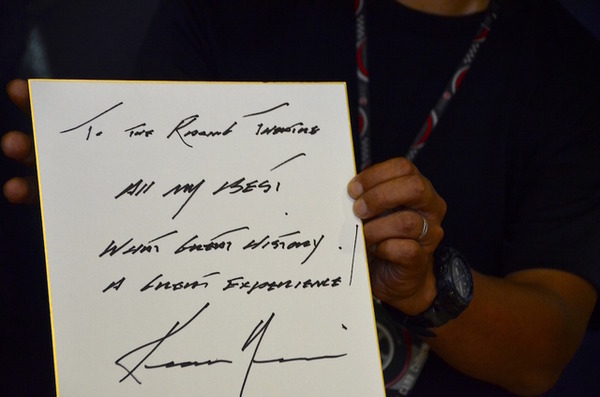 TO THE THEATRE
All MY BEST!
WHAT GREAT HISTORY.
A GREAT EXPERIENCE!